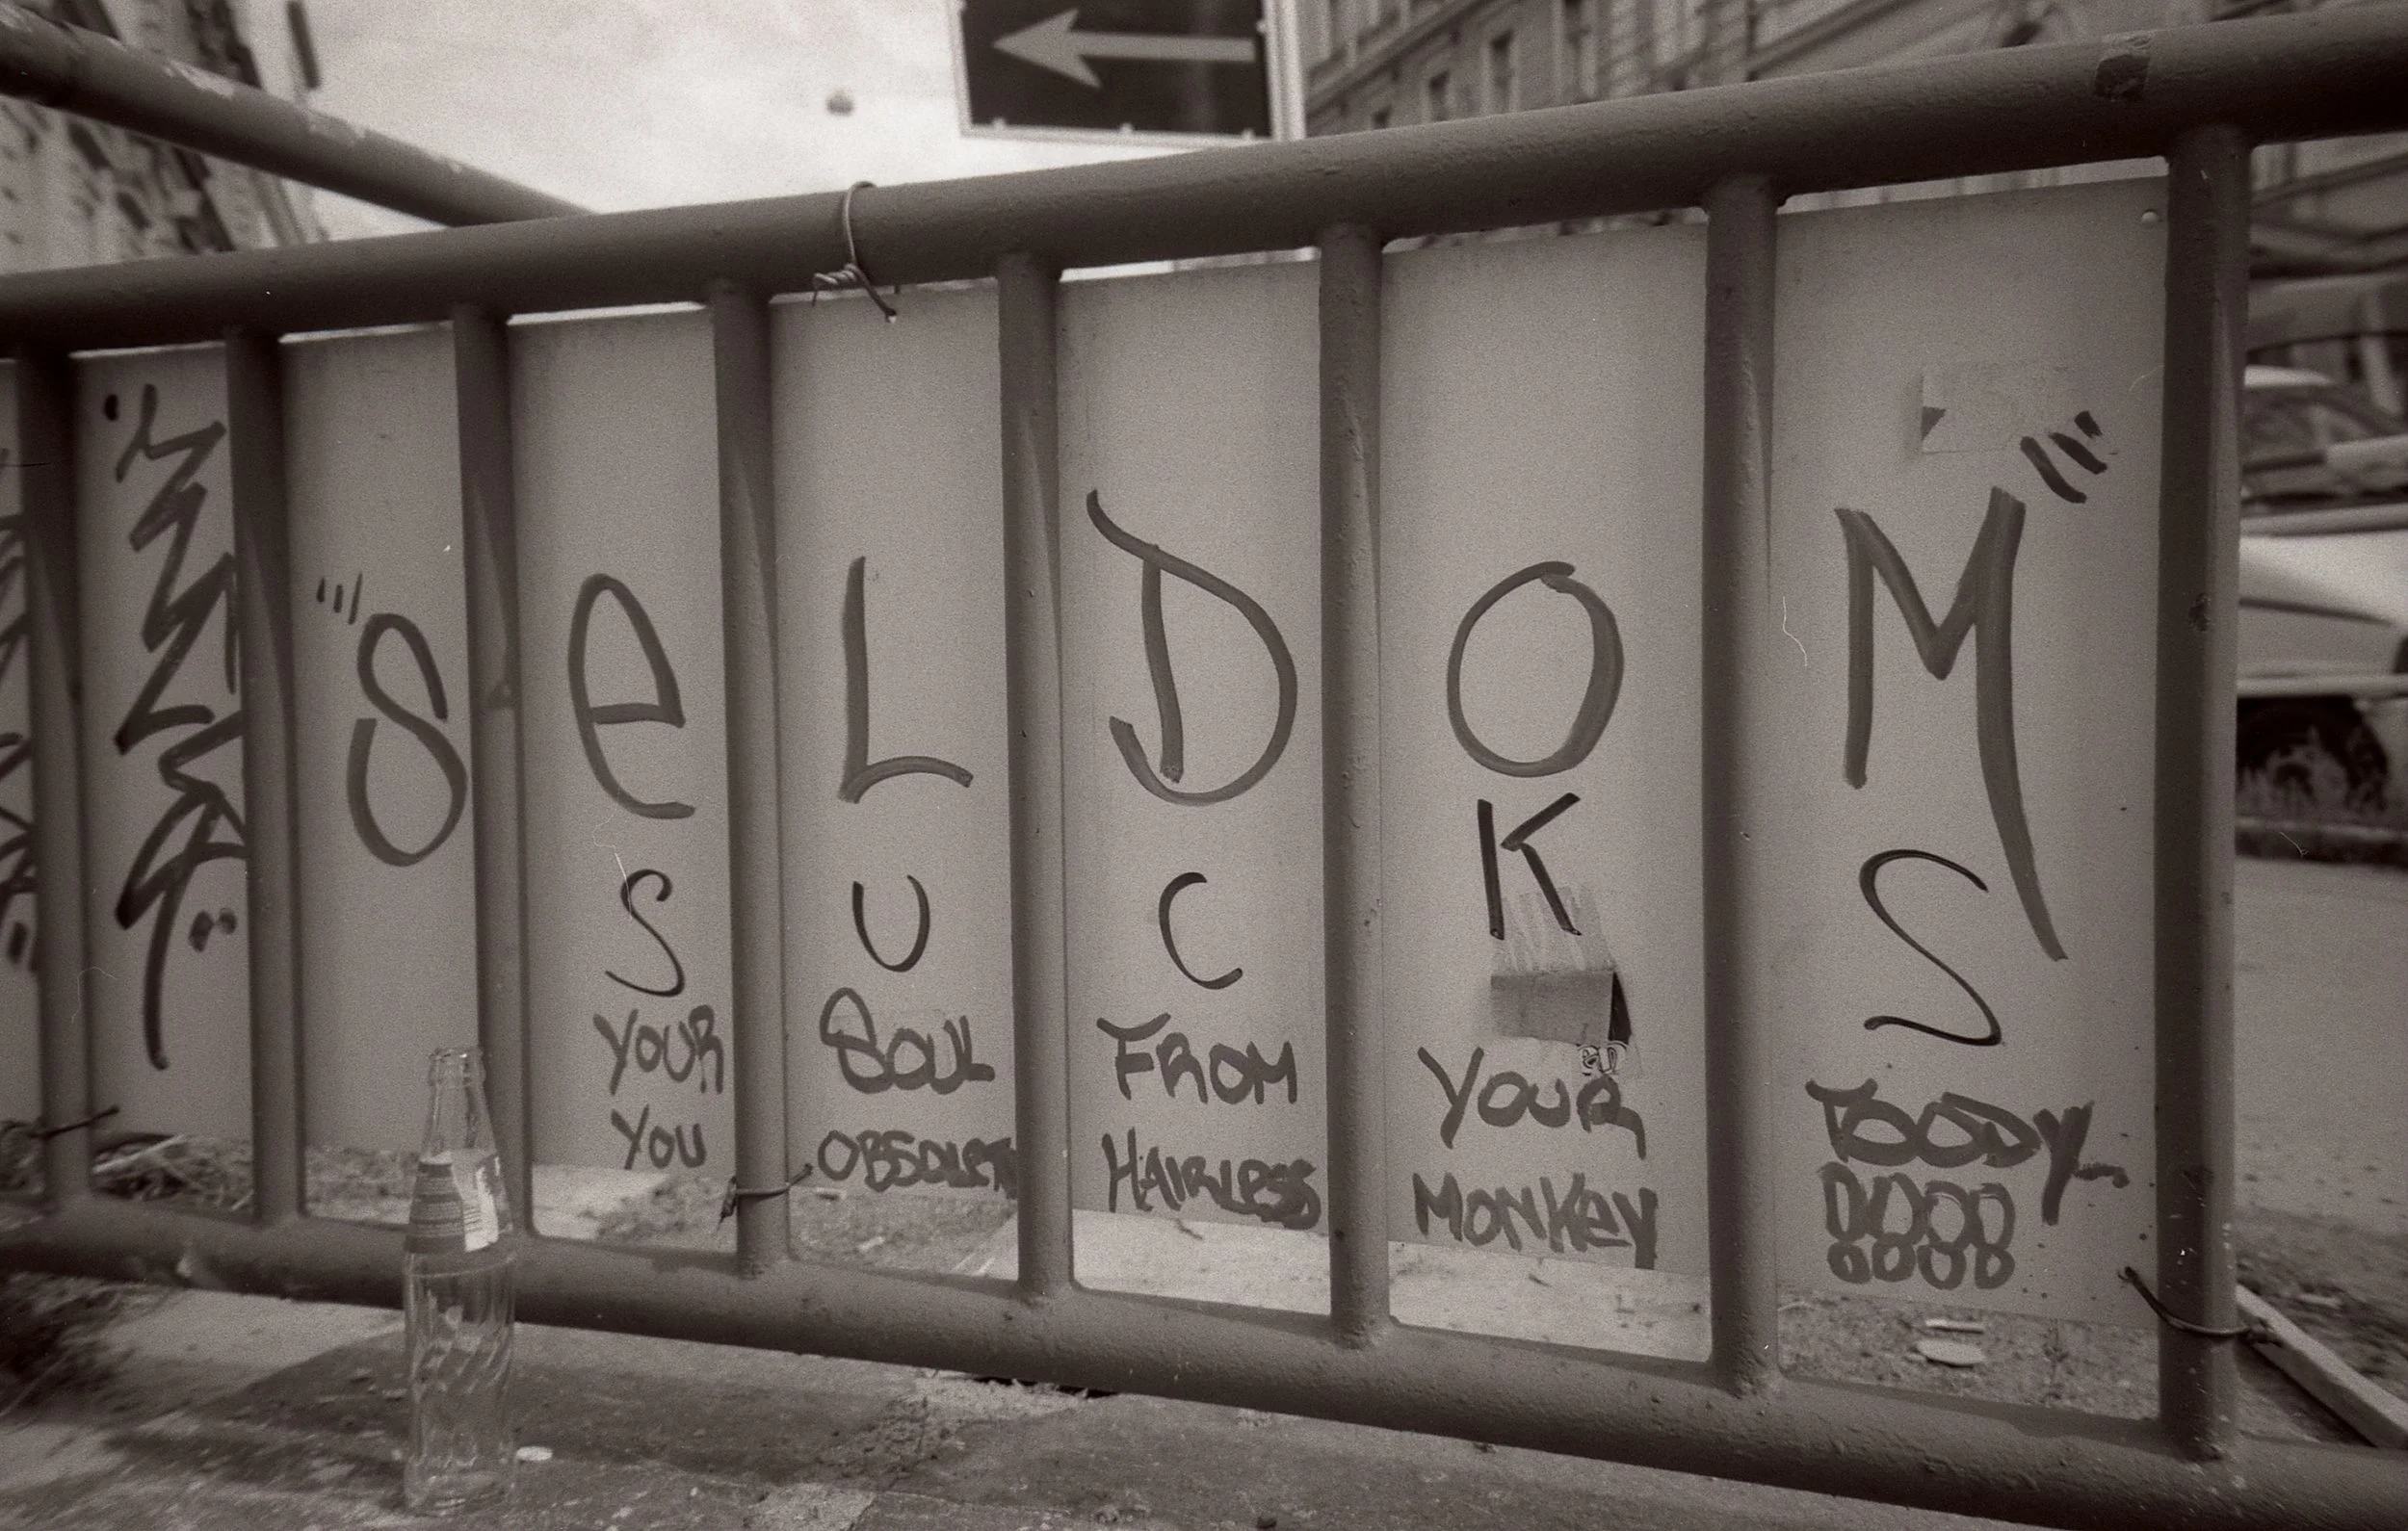 "SeLDOM"
SUCKS
YOUR SOUL FROM YOUR
YOU OBSOLETE HAIRLESS MONKEY